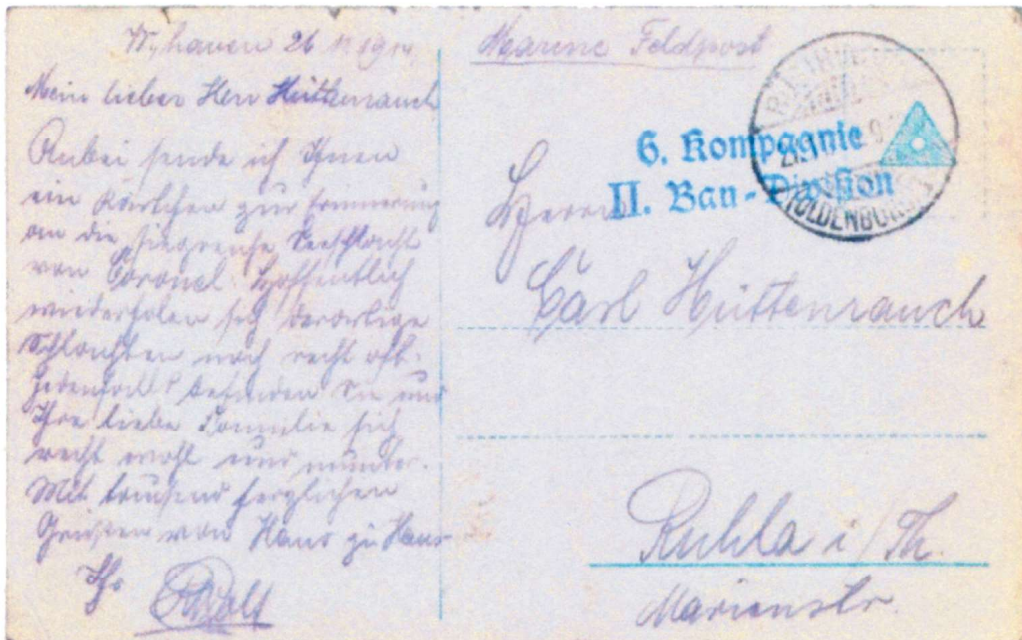 W,haven 26 11 1914
Mein lieber Herr Hüttenrauch
Anbei sende ich Ihnen
ein Kärtchen zur Erinnerung
an die siegreiche Seeschlacht
von Coronel. Hoffentlich
wiederholen sich derartige
Schlachten noch recht oft.
Jedenfalls befinden Sie und
Ihre liebe Familie sich
recht wohl und munter.
Mit tausend herzlichen
Grüssen von Haus zu Haus
Ihr
Marine Feldpost
6. Kompagnie
II. Bau-Division
Herrn
Carl Hüttenrauch
Ruhla i/Th.
Marienstr.